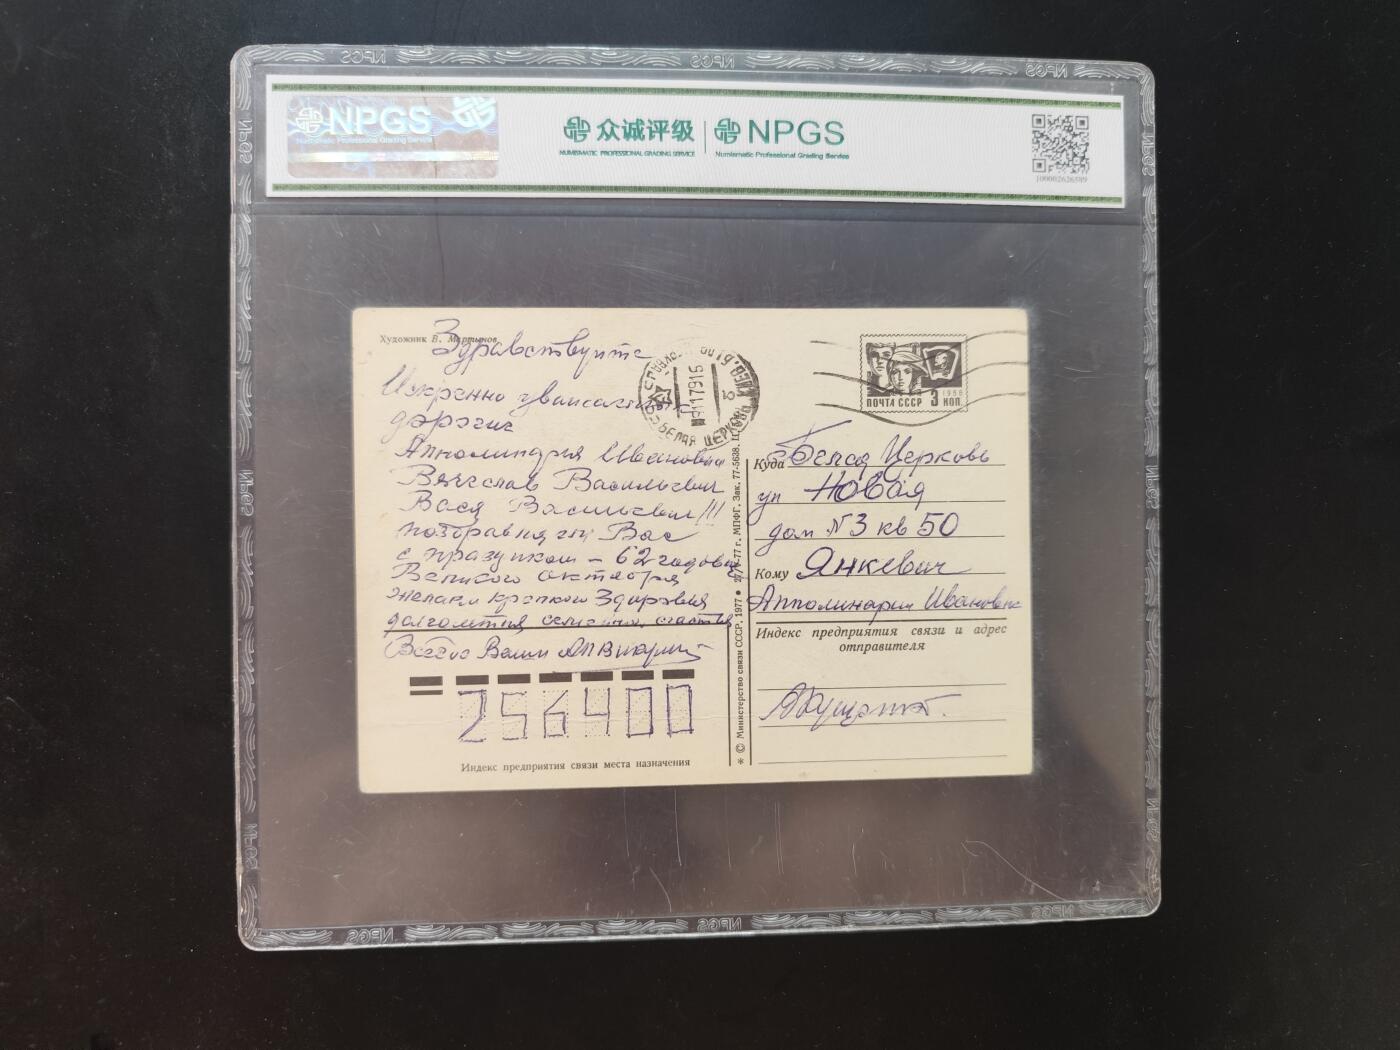 NPGS
Numismatic Professional Grading Service
众诚评级
NUMISMATIC PROFESSIONAL GRADING SERVICE
NPGS
Numismatic Professional Grading Service
Художник В. Мартынов
Здравствуйте
Искренно
дорогие
Апполинария Ивановна
Вячеслав Васильевич
Вася Васильевич!!!
поздравляем Вас
с праздником – 62 годовщ
Великого октября
желаем крепкого здоровья
долголетия счастья
Всего Вам
256400
Индекс предприятия связи места назначения
БЕЛАЯ ЦЕРКОВЬ
ПОЧТА СССР 3 КОП.
1966
Куда Белая Церковь
ул Новая
дом N3 кв 50
Кому Янкевич
Апполинарии Ивановне
Индекс предприятия связи и адрес
отправителя
© Министерство связи СССР, 1977 • МПФГ. Зак. 77-5638.